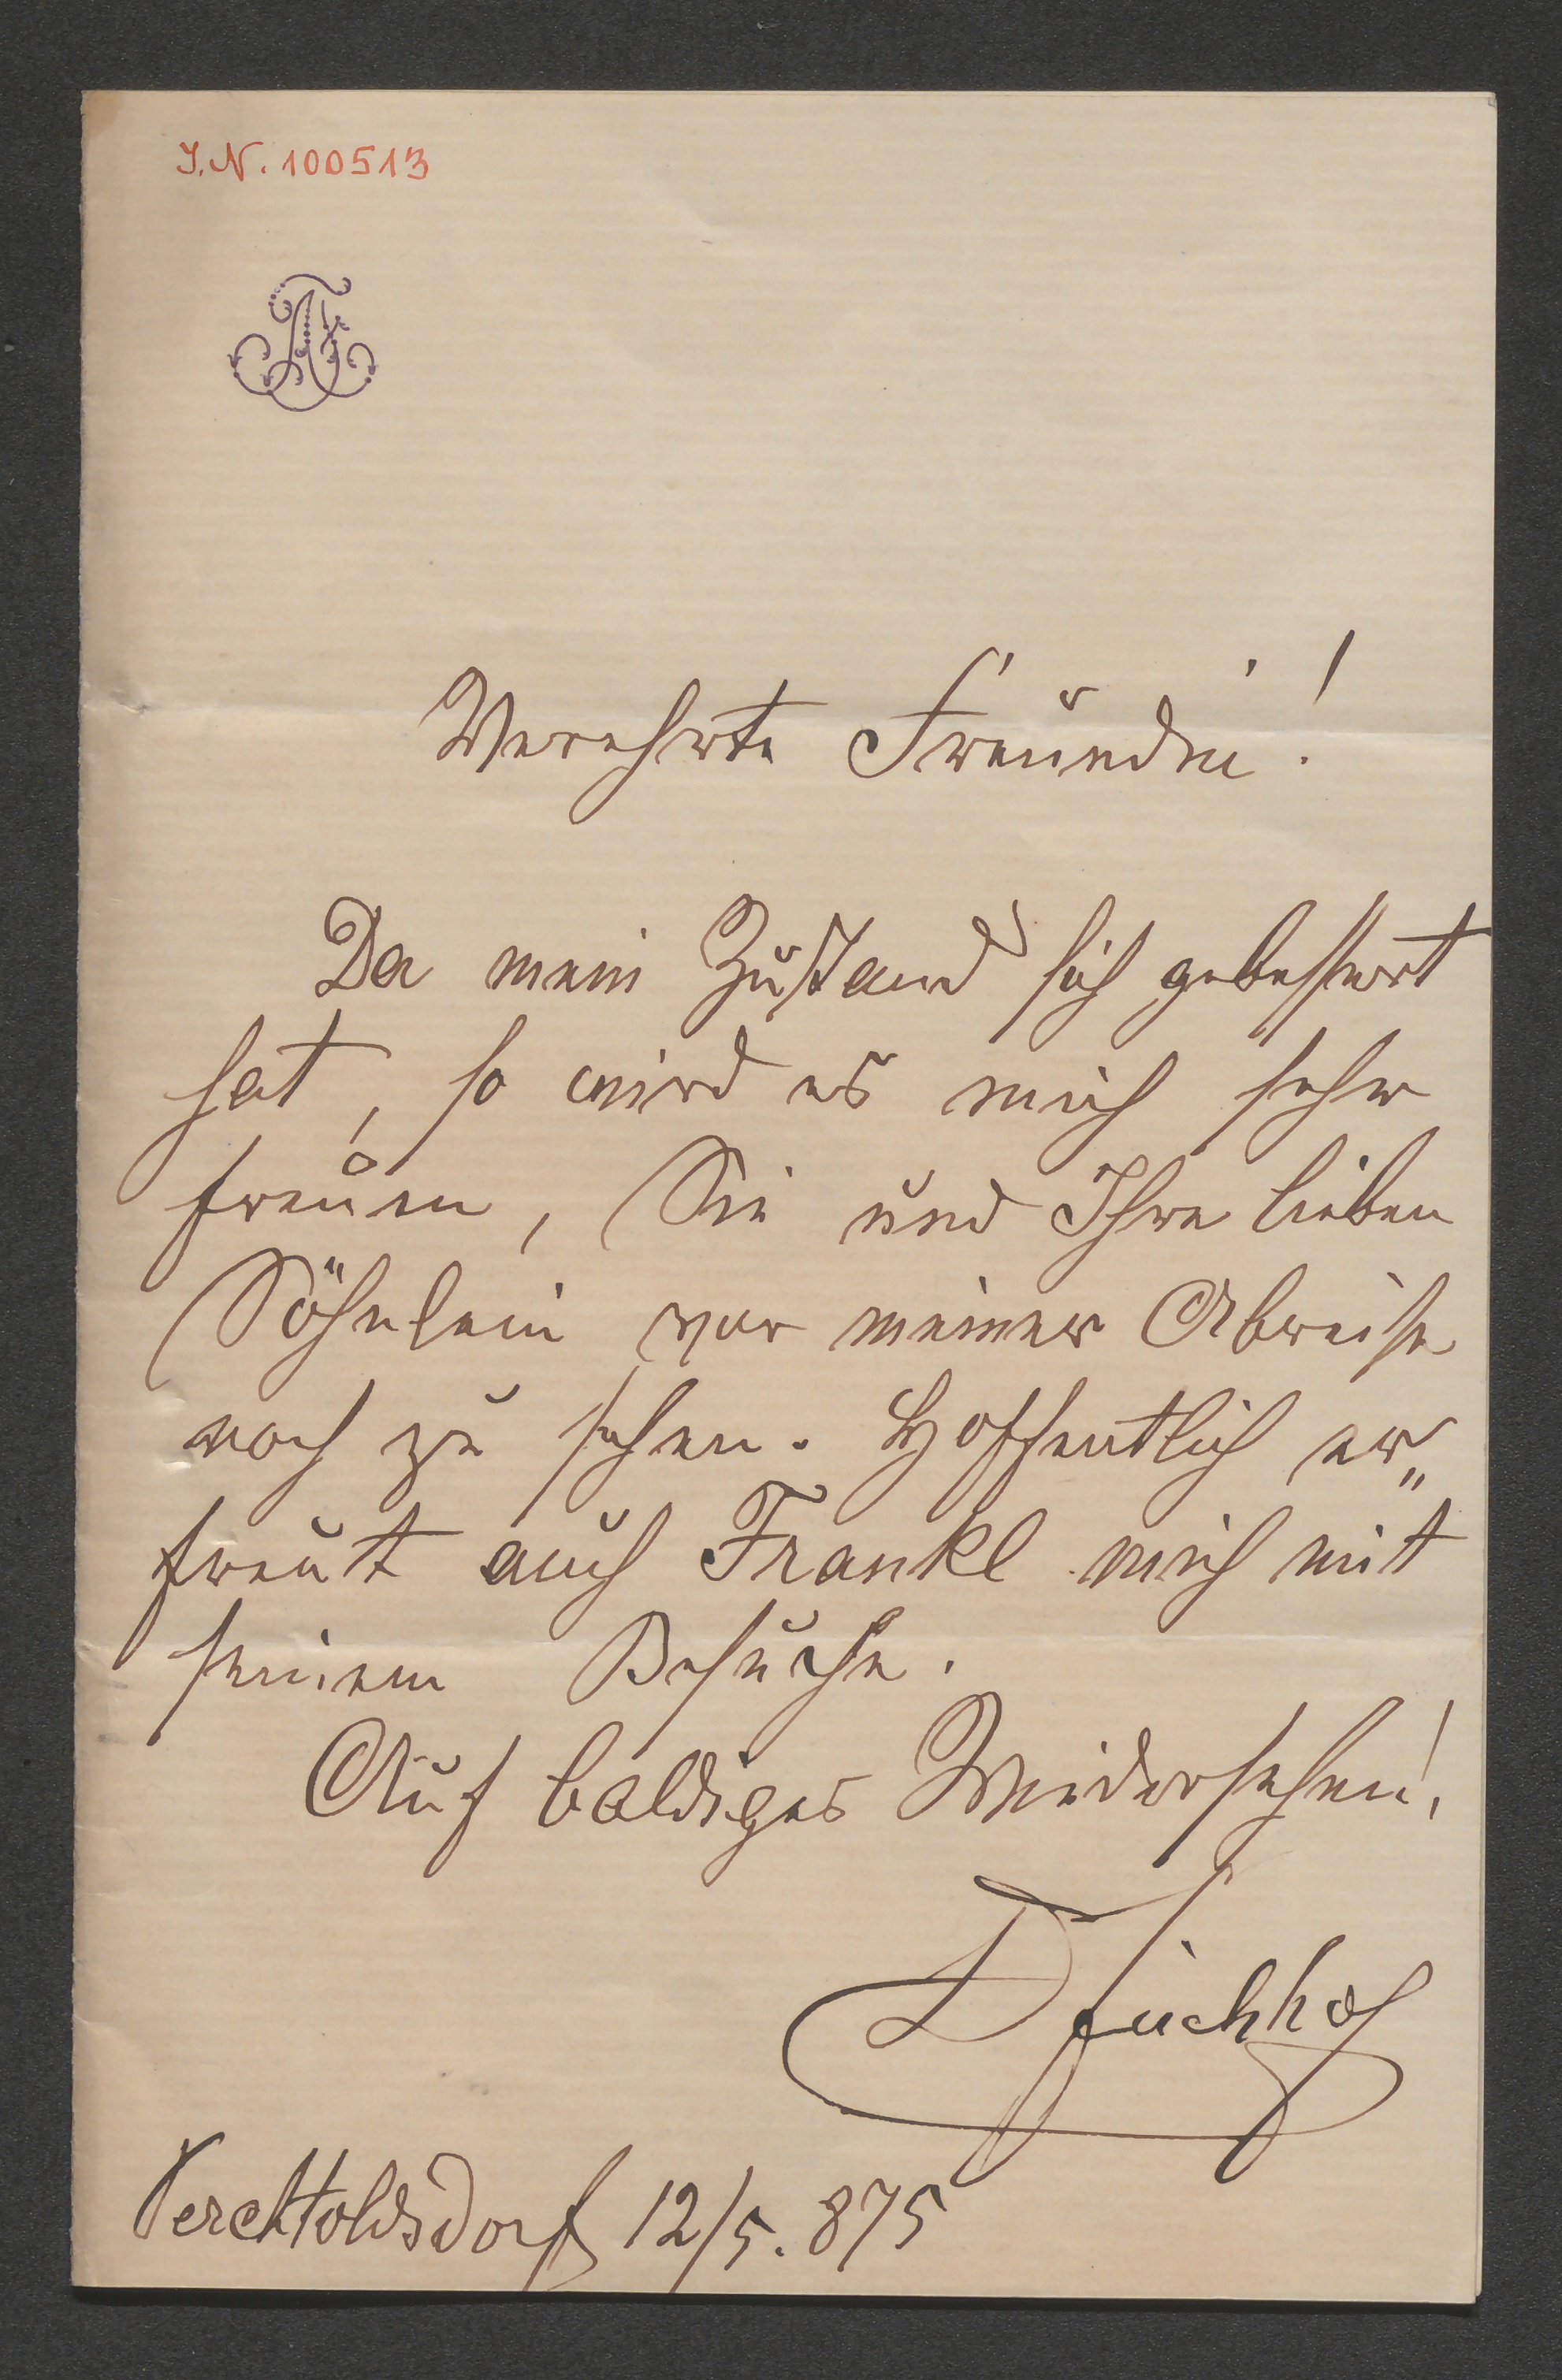 I.N. 100513
AF
Verehrte Freundin!
Da mein Zustand sich gebessert
hat, so wird es mich sehr
freuen, Sie und Ihre lieben
Söhnlein vor meiner Abreise
noch zu sehen. Hoffentlich er„
freut auch Frankl mich mit
seinem Besuche.
Auf baldiges Wiedersehen!
Perchtoldsdorf 12/5. 875